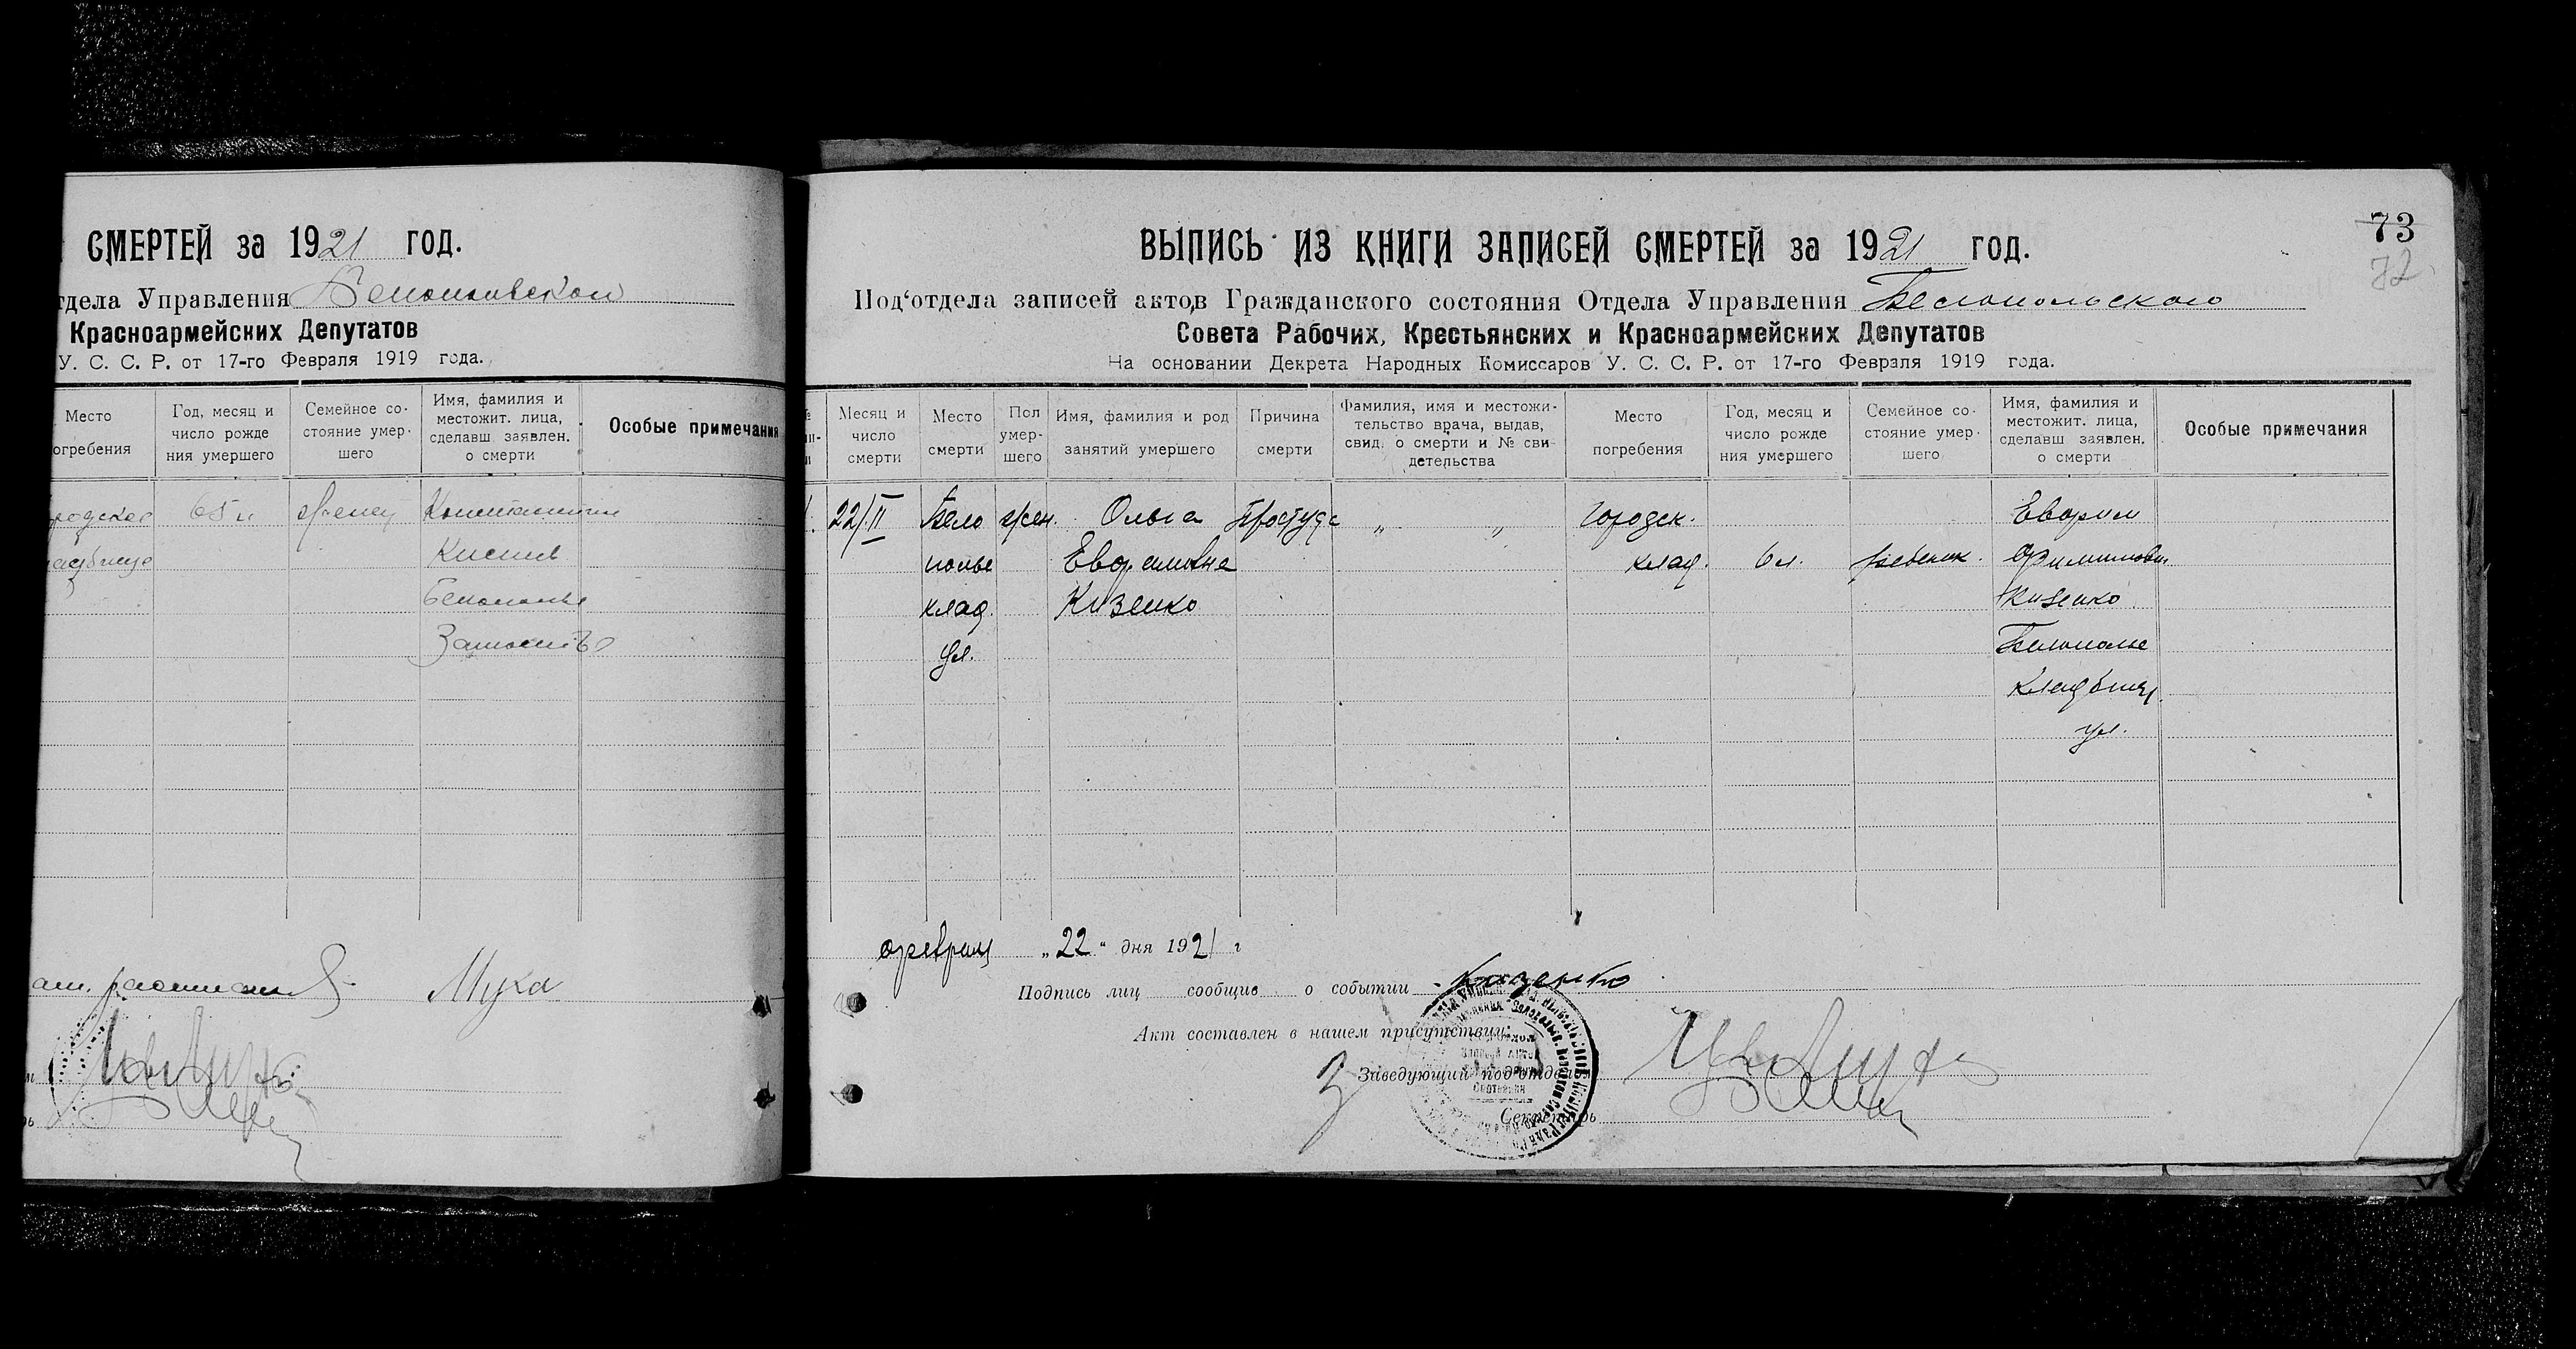 СМЕРТЕЙ за 1921 год.
отдела Управления
Красноармейских Депутатов
У. С. С. Р. от 17-го Февраля 1919 года.
Место
погребения
Год, месяц и
число рожде
ния умершего
Семейное со-
стояние умер-
шего
Имя, фамилия и
местожит. лица,
сделавш заявлен.
о смерти
Особые примечания
65 л
Белополье
Мука
73
72
ВЫПИСЬ ИЗ КНИГИ ЗАПИСЕЙ СМЕРТЕЙ за 1921 год.
Под‘отдела записей актов Гражданского состояния Отдела Управления Белопольского
Совета Рабочих, Крестьянских и Красноармейских Депутатов
На основании Декрета Народных Комиссаров У. С. С. Р. от 17-го Февраля 1919 года.
Месяц и
число
смерти
Место
смерти
Пол
умер-
шего
Имя, фамилия и род
занятий умершего
Причина
смерти
Фамилия, имя и местожи-
тельство врача, выдав,
свид. о смерти и № сви-
детельства
Место
погребения
Год, месяц и
число рожде
ния умершего
Семейное со-
стояние умер-
шего
Имя, фамилия и
местожит. лица,
сделавш заявлен.
о смерти
Особые примечания
22/II
Бело
полье
клад.
ул.
жен.
Ольга
Евфимовна
Кизенко
Простуда
„ „
Городск.
клад.
6 л.
ребенок.
Евфим
Кизенко
Белополье
Кладбищ.
ул.
февраля „22“ дня 1921 г
Подпись лиц сообщив о событии Кизенко
Акт составлен в нашем присутствии:
Заведующий подотделом
Секретарь